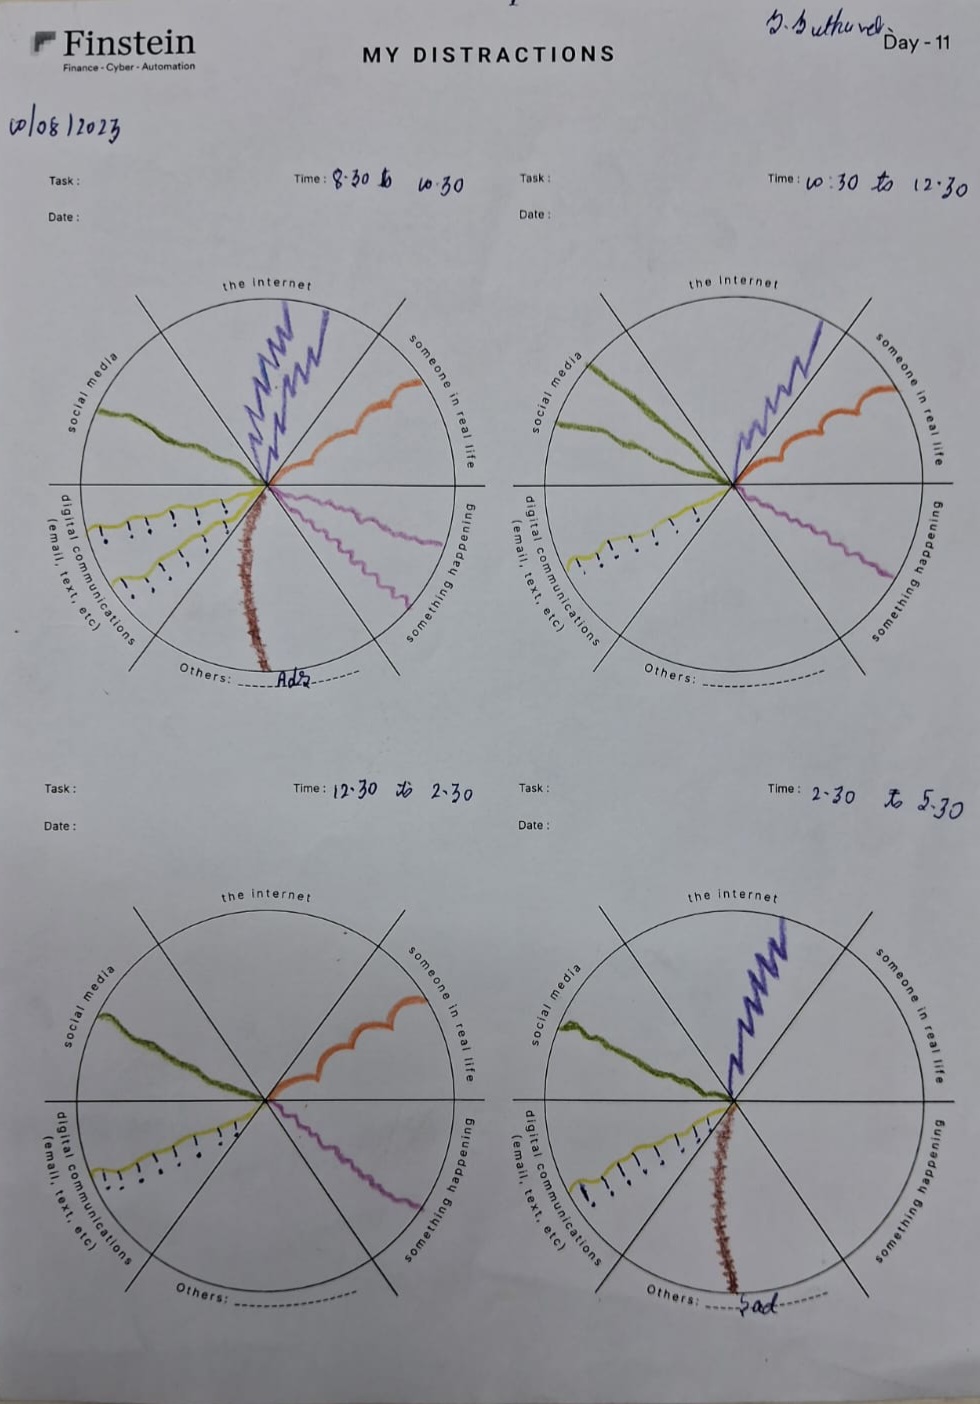 Finstein
Finance - Cyber - Automation
MY DISTRACTIONS
Day - 11
10/08/2023
Task :
Time : 8.30 to 10.30
Date :
the internet
someone in real life
something happening
Others: Ads
digital communications
(email, text, etc)
social media
Task :
Time : 10:30 to 12.30
Date :
the internet
someone in real life
something happening
Others:
digital communications
(email, text, etc)
social media
Task :
Time : 12.30 to 2.30
Date :
the internet
someone in real life
something happening
Others:
digital communications
(email, text, etc)
social media
Task :
Time : 2.30 to 5.30
Date :
the internet
someone in real life
something happening
Others: Sad
digital communications
(email, text, etc)
social media